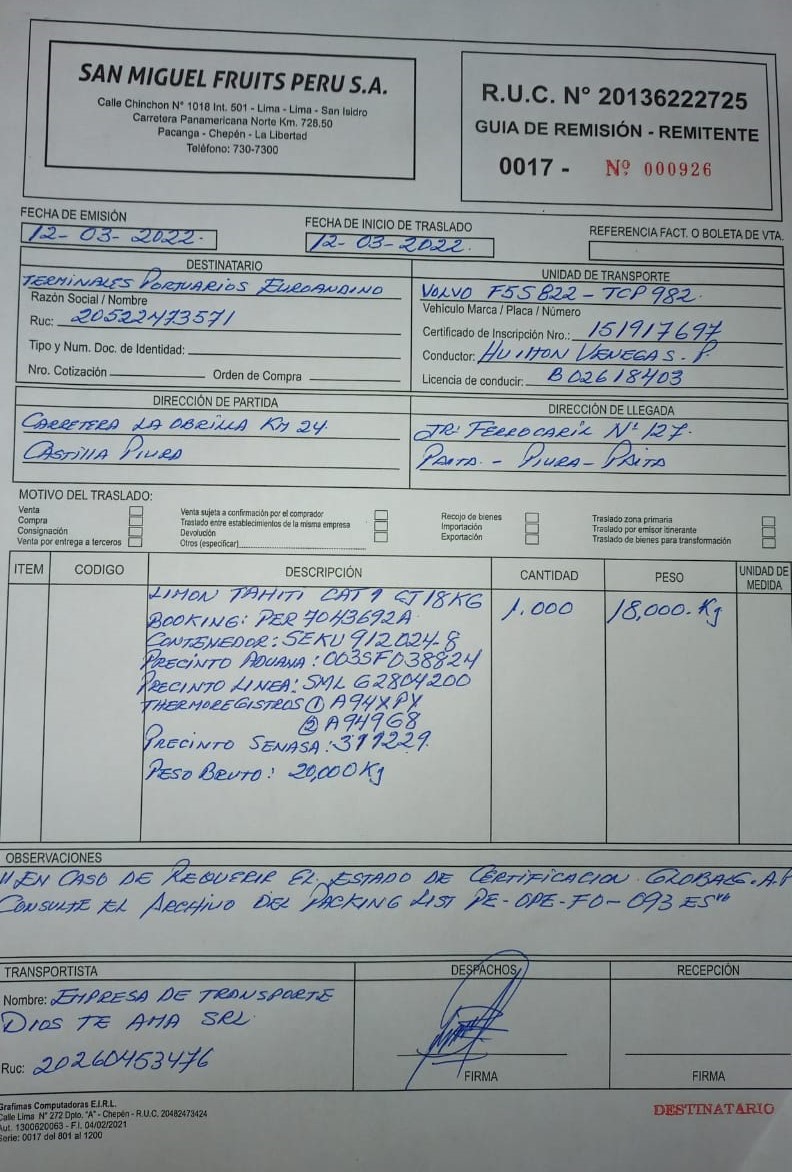 SAN MIGUEL FRUITS PERU S.A.
Calle Chinchon N° 1018 Int. 501 - Lima - Lima - San Isidro
Carretera Panamericana Norte Km. 728.50
Pacanga - Chepén - La Libertad
Teléfono: 730-7300
R.U.C. N° 20136222725
GUIA DE REMISIÓN - REMITENTE
0017 - Nº 000926
FECHA DE EMISIÓN
12-03-2022.
FECHA DE INICIO DE TRASLADO
12-03-2022.
REFERENCIA FACT. O BOLETA DE VTA.
DESTINATARIO
TERMINALES PORTUARIOS EUROANDINO
Razón Social / Nombre
Ruc: 20522473571
Tipo y Num. Doc. de Identidad:
Nro. Cotización Orden de Compra
UNIDAD DE TRANSPORTE
VOLVO F5S822 - TCP982.
Vehículo Marca / Placa / Número
Certificado de Inscripción Nro.: 151917697
Conductor: HUIMAN VENEGAS. P.
Licencia de conducir: B02618403
DIRECCIÓN DE PARTIDA
CARRETERA LA OBRILLA KM 24.
CASTILLA PIURA
DIRECCIÓN DE LLEGADA
JR: FERROCARIL N° 127.
PAITA. - PIURA - PAITA
MOTIVO DEL TRASLADO:
Venta
Compra
Consignación
Venta por entrega a terceros
Venta sujeta a confirmación por el comprador
Traslado entre establecimientos de la misma empresa
Devolución
Otros (especificar)
Recojo de bienes
Importación
Exportación
Traslado zona primaria
Traslado por emisor itinerante
Traslado de bienes para transformación
ITEM CODIGO DESCRIPCIÓN CANTIDAD PESO UNIDAD DE MEDIDA
LIMON TAHITI CAT 1 CJ 18KG 1.000 18,000. Kg
BOOKING: PER 7043692A
CONTENEDOR: SEKU 912024-8
PRECINTO ADUANA: 003SF038824
PRECINTO LINEA: SML G2804200
THERMOREGISTROS ① A94XPX
② A949G8
PRECINTO SENASA: 319229.
PESO BRUTO: 20,000 Kg
OBSERVACIONES
"EN CASO DE REQUERIR EL ESTADO DE CERTIFICACION GLOBALG.A.P
CONSULTE EL ARCHIVO DEL PACKING LIST PE-OPE-FO-093 ES
TRANSPORTISTA
Nombre: EMPRESA DE TRANSPORTE
DIOS TE AMA SRL
Ruc: 20260453476
DESPACHOS
FIRMA
RECEPCIÓN
FIRMA
Grafimas Computadoras E.I.R.L.
Calle Lima N° 272 Dpto. "A" - Chepén - R.U.C. 20482473424
Aut. 1300620063 - F.I. 04/02/2021
Serie: 0017 del 801 al 1200
DESTINATARIO